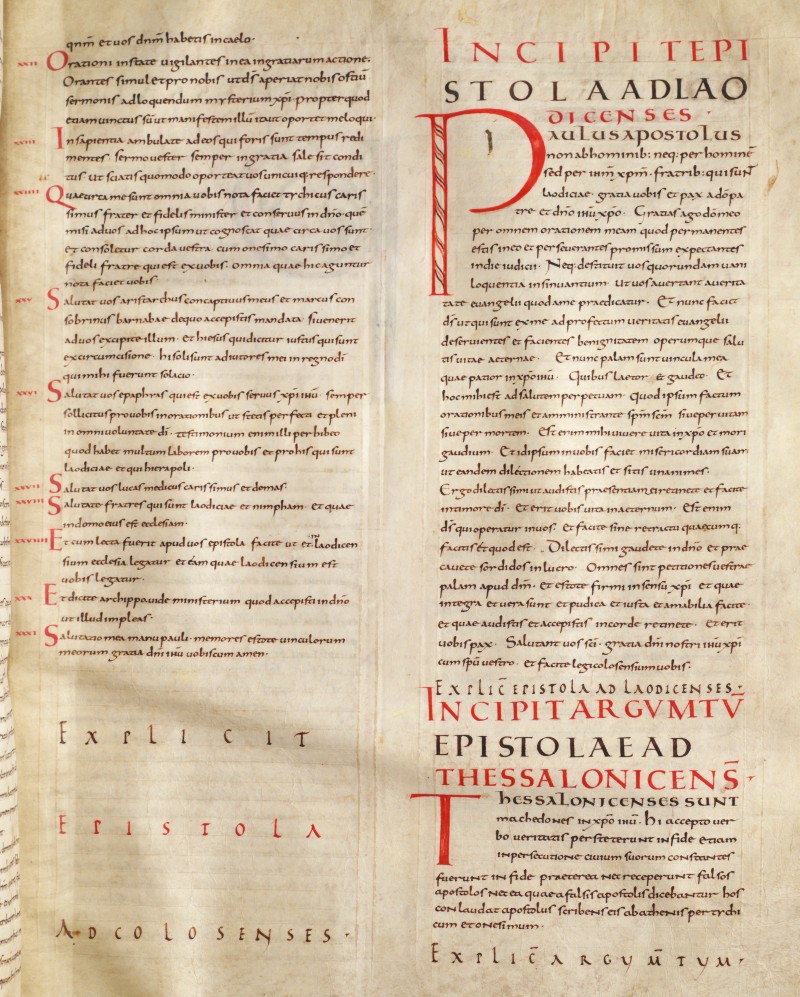 qnm̅ et uos dnm̅ habetis in caelo·
xxii Orationi instate uigilantes in ea in gratiarum actione:
Orantes simul et pro nobis ut d̅s aperiat nobis ostiu̅
sermonis ad loquendum mysterium xp̅i· propter quod
etiam uinctus su̅ ut manifestem illu̅ ita ut oportet me loqui·
xxiii In sapientia ambulate ad eos qui foris sunt tempus redi
mentes· sermo uester semper in gratia sale sit condi
tus ut sciatis quomodo oporteat uos unicuiq· respondere·
xxiiii Quae circa me sunt omnia uobis nota faciet tychicus caris
simus frater et fidelis minister et conseruus in dno· que̅
misi ad uos ad hoc ipsum ut cognoscat quae circa uos sunt
et consoletur corda uestra cum onesimo carissimo et
fideli fratre qui est ex uobis· omnia quae hic aguntur
nota faciet uobis·
xxv Salutat uos aristarchus concaptiuus meus et marcus con
sobrinus barnabae de quo accepistis mandata· si uenerit
ad uos excipite illum· et hiesus qui dicitur iustus qui sunt
ex circumcisione· hi soli sunt adiutores mei in regno d̅i·
qui mihi fuerunt solacio·
xxvi Salutat uos epaphras qui est ex uobis seruus xp̅i ihu̅· semper
sollicitus pro uobis in orationibus ut stetis perfecti et pleni
in omni uoluntate d̅i· testimonium enim illi perhibeo
quod habet multum laborem pro uobis et pro his qui sunt
laodiciae et qui hierapoli·
xxvii Salutat uos lucas medicus carissimus et demas·
xxviii Salutate fratres qui sunt laodiciae et nimpham· et quae
in domo eius est ecclesiam·
xxviiii Et cum lecta fuerit apud uos epistola facite ut et in laodicen
sium ecclesia legatur et ea̅m quae laodicensium est
uobis legatur·
xxx Et dicite archippo uide ministerium quod accepisti in dno̅
ut illud impleas·
xxxi Salutatio mea manu pauli· memores estote uinculorum
meorum gratia dn̅i ihu̅ uobiscum amen·
EXPLICIT
EPISTOLA
AD COLOSENSES·
INCIPIT EPI
STOLA AD LAO
DICENSES·
Paulus apostolus
non ab hominib: neq: per homine̅
sed per ihm̅ xpm̅· fratrib: qui sunt
laodiciae· gratia uobis et pax a do̅ pa
tre et dno̅ ihu̅ xpo̅· Gratias ago do̅ meo
per omnem orationem meam quod permanentes
estis in eo et perseuerantes promissum expectantes
in die iudicii· Neq: destituit uos quorundam uani
loquentia insinuantium· ut uos auertant a uerita
tate euangelii quod a me praedicatur· Et nunc faciet
d̅s ut qui sunt ex me ad profectum ueritatis euangelii
deseruientes et facientes benignitatem operumque salu
tis uitae aeternae· Et nunc palam sunt uincula mea
quae patior in xpo̅ ihu̅· Quibus laetor et gaudeo· Et
hoc mihi est ad salutem perpetuam· Quod ipsum factum
orationibus meis et amministrante spm̅ scm̅· siue per uitam
siue per mortem· Est enim mihi uiuere uita in xpo̅ et mori
gaudium· Et id ipsum in uobis faciet misericordiam suam
ut eandem dilectionem habeatis et sitis unanimes·
Ergo dilectissimi ut audistis praesentiam ei retinete et facite
in timore d̅i· Et erit uobis uita in aeternum· Est enim
d̅s qui operatur in uos· Et facite sine retractu quaecumq:
facitis et quod est· Dilectissimi gaudete in dno̅ et prae
cauete sordidos in lucro· Omnes sint petitiones uestrae
palam apud dm̅· et estote firmi in sensu xp̅i et quae
integra et uera sunt et pudica et iusta et amabilia facite·
et quae audistis et accepistis in corde retinete· Et erit
uobis pax· Salutant uos sc̅i· gratia dn̅i nostri ihu̅ xp̅i
cum spu̅ uestro· et facite legi colosensium uobis·
EXPLIC̅ EPISTOLA AD LAODICENSES·
INCIPIT ARGVMTV̅
EPISTOLAE AD
THESSALONICENS̅·
Thessalonicenses sunt
machedones in xpo̅ ihu̅· hi accepto uer
bo ueritatis perstiterunt in fide etiam
in persecutione ciuium suorum constantes
fuerunt in fide praeterea nec receperunt falsos
apostolos nec ea quae a falsis apostolis dicebantur hos
conlaudat apostolus scribens eis ab athenis per tychi
cum et onesimum·
EXPLIC̅ ARGUM̅TUM·